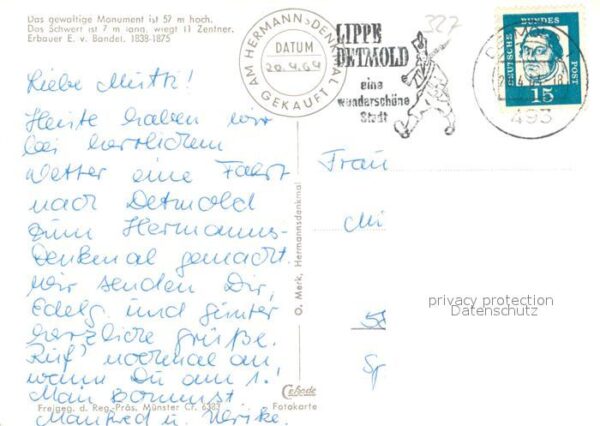 Das gewaltige Monument ist 57 m hoch.
Das Schwert ist 7 m lang, wiegt 11 Zentner.
Erbauer E. v. Bandel. 1838-1875
AM HERMANNSDENKMAL
DATUM
20.4.64
GEKAUFT
LIPPE
DETMOLD
eine
wunderschöne
Stadt
327
DEUTSCHE BUNDESPOST
15
493
Liebe Mutti!
Heute haben wir
bei herrlichem
Wetter eine Fahrt
nach Detmold
zum Hermanns-
denkmal gemacht.
Wir senden Dir,
Edelg. und Günter
herzliche Grüße.
Ruf' nochmal an,
wann Du am 1.
Mai kommst
Manfred u. Ulrike.
Freigeg. d. Reg.-Präs. Münster Cr. 6383
Cekade
Fotokarte
O. Merk, Hermannsdenkmal
Frau
Mi
Sp
privacy protection
Datenschutz